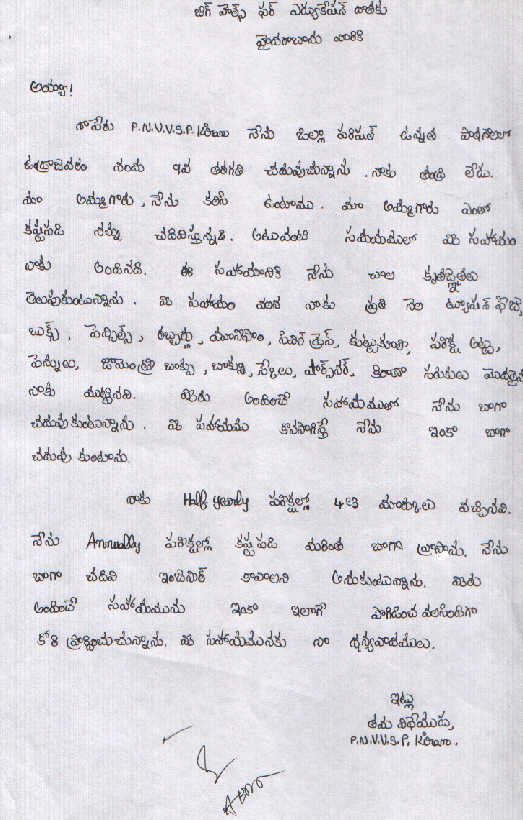 బిగ్ హెల్ప్ ఫర్ ఎడ్యుకేషన్ వారికు
హైదరాబాదు వారికి
అయ్యా!
నాపేరు P.N.V.V.S.P. Kumar నేను జిల్లా పరిషత్ ఉన్నత పాఠశాలలో
ఉండ్రాజవరం నందు 9వ తరగతి చదువుచున్నాను. నాకు తండ్రి లేడు.
మా అమ్మగారు, నేను కలిసి ఉంటాము. మా అమ్మగారు ఎంతో
కష్టపడి నన్ను చదివిస్తున్నది. అటువంటి సమయములో మీ సహాయం
నాకు అందినది. ఈ సహాయానికి నేను చాల కృతజ్ఞతలు
తెలుపుకుంటున్నాను. మీ సహాయం వలన నాకు ప్రతి నెల ట్యూషన్ ఫీజు,
బుక్స్, పెన్సిల్స్, యూనిఫాం, సివిల్ డ్రెస్, పరీక్ష అట్ట,
పెన్నులు, జామెంట్రీ బాక్సు, స్కేలు, షార్ప్‌నర్, కిరాణా సరుకులు మొదలైనవి
నాకు ఇచ్చినది. మీరు అందించే సహాయములో నేను బాగా
చదువుకుంటున్నాను. మీ సహాయము కొనసాగిస్తే నేను ఇంకా బాగా
చదువు కుంటాను.
నాకు Half yearly పరీక్షల్లో 463 మార్కులు వచ్చినవి.
నేను Annually పరీక్షల్లో కష్టపడి మరింత బాగా వ్రాస్తాను. నేను
బాగా చదివి ఇంజనీర్ కావాలని అనుకుంటున్నాను. మీరు
అందించే సహాయమును ఇంకా ఇలాగే సాగించ వలసిందిగా
కోరి ప్రార్థించుచున్నాను. మీ సహాయమునకు నా ధన్యవాదములు.
ఇట్లు
తమ విధేయుడు,
P.N.V.V.S.P. Kumar.